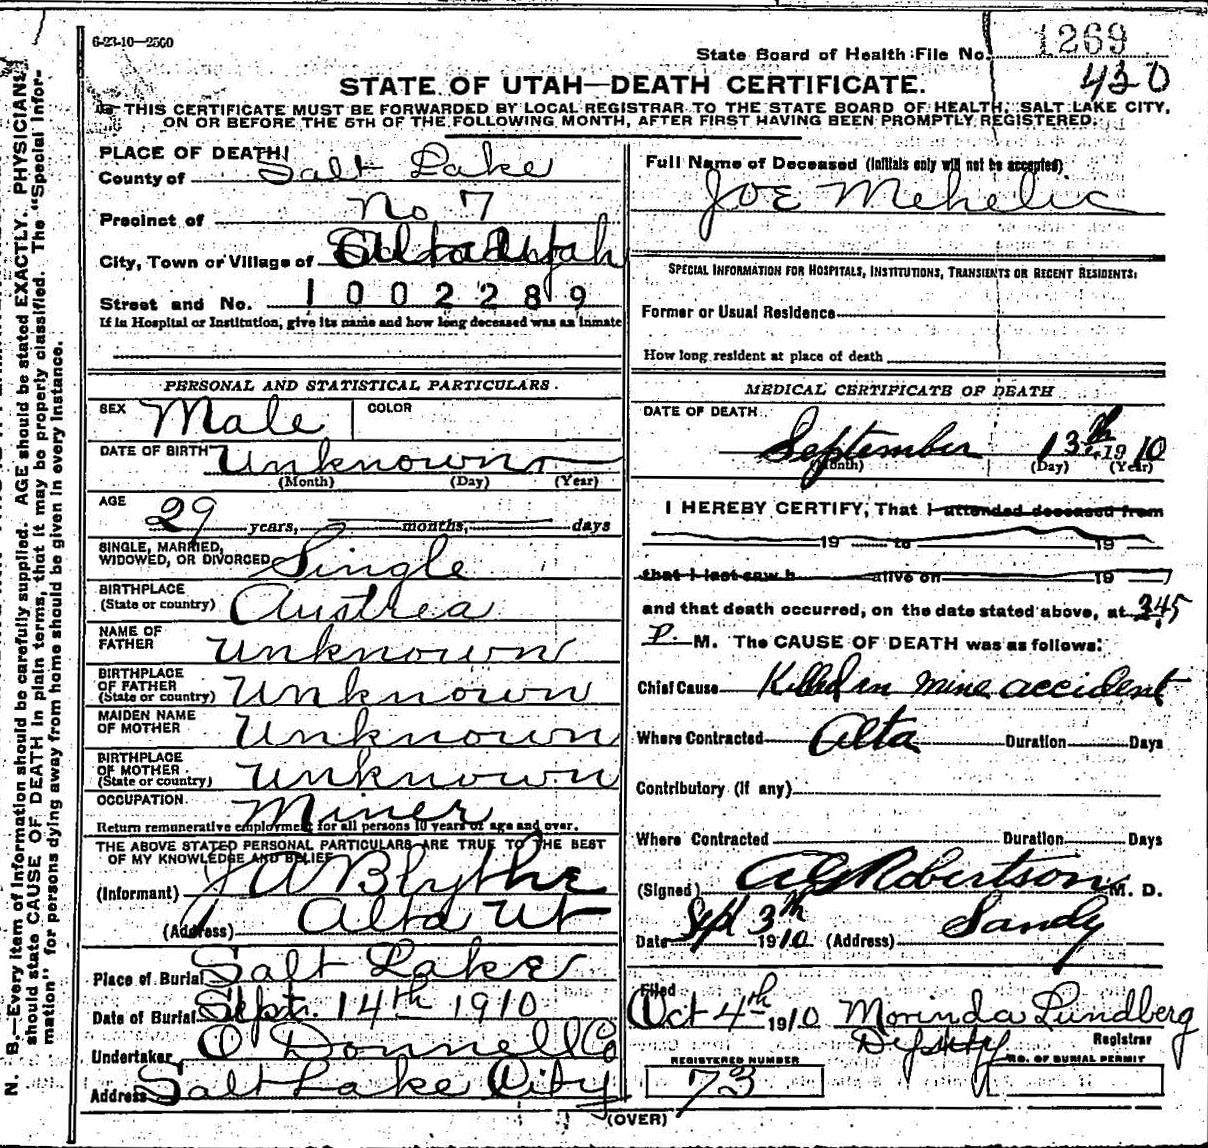 6-23-10—2500
State Board of Health File No. 1269
430
STATE OF UTAH—DEATH CERTIFICATE.
THIS CERTIFICATE MUST BE FORWARDED BY LOCAL REGISTRAR TO THE STATE BOARD OF HEALTH, SALT LAKE CITY,
ON OR BEFORE THE 5TH OF THE FOLLOWING MONTH, AFTER FIRST HAVING BEEN PROMPTLY REGISTERED.
PLACE OF DEATH
County of Salt Lake
Precinct of No 7
City, Town or Village of Utah
Street and No. 1002289
If in Hospital or Institution, give its name and how long deceased was an inmate
PERSONAL AND STATISTICAL PARTICULARS.
SEX Male COLOR
DATE OF BIRTH Unknown
(Month) (Day) (Year)
AGE
29 years, months, days
SINGLE, MARRIED,
WIDOWED, OR DIVORCED Single
BIRTHPLACE
(State or country) Austrea
NAME OF
FATHER Unknown
BIRTHPLACE
OF FATHER
(State or country) Unknown
MAIDEN NAME
OF MOTHER Unknown
BIRTHPLACE
OF MOTHER
(State or country) Unknown
OCCUPATION Miner
Return remunerative employment for all persons 10 years of age and over.
THE ABOVE STATED PERSONAL PARTICULARS ARE TRUE TO THE BEST
OF MY KNOWLEDGE AND BELIEF
(Informant) J A Blythe
(Address) Alta Ut
Place of Burial Salt Lake
Date of Burial Sept. 14th 1910
Undertaker O Donnell Co
Address Salt Lake City
Full Name of Deceased (Initials only will not be accepted)
JOE Mehelic
SPECIAL INFORMATION FOR HOSPITALS, INSTITUTIONS, TRANSIENTS OR RECENT RESIDENTS:
Former or Usual Residence
How long resident at place of death
MEDICAL CERTIFICATE OF DEATH
DATE OF DEATH
September 13th 1910
(Month) (Day) (Year)
I HEREBY CERTIFY, That I attended deceased from
19 to 19
that I last saw h alive on 19
and that death occurred, on the date stated above, at 3.45
P. M. The CAUSE OF DEATH was as follows:
Chief Cause Killed in mine accident
Where Contracted Alta Duration Days
Contributory (If any)
Where Contracted Duration Days
(Signed) A G Robertson M. D.
Date Sept 3th 1910 (Address) Sandy
Filed
Oct 4th 1910 Morinda Lundberg
Deputy Registrar
REGISTERED NUMBER NO. OF BURIAL PERMIT
73
(OVER)
N. B.—Every item of information should be carefully supplied. AGE should be stated EXACTLY. PHYSICIANS
should state CAUSE OF DEATH in plain terms, that it may be properly classified. The "Special Infor-
mation" for persons dying away from home should be given in every instance.